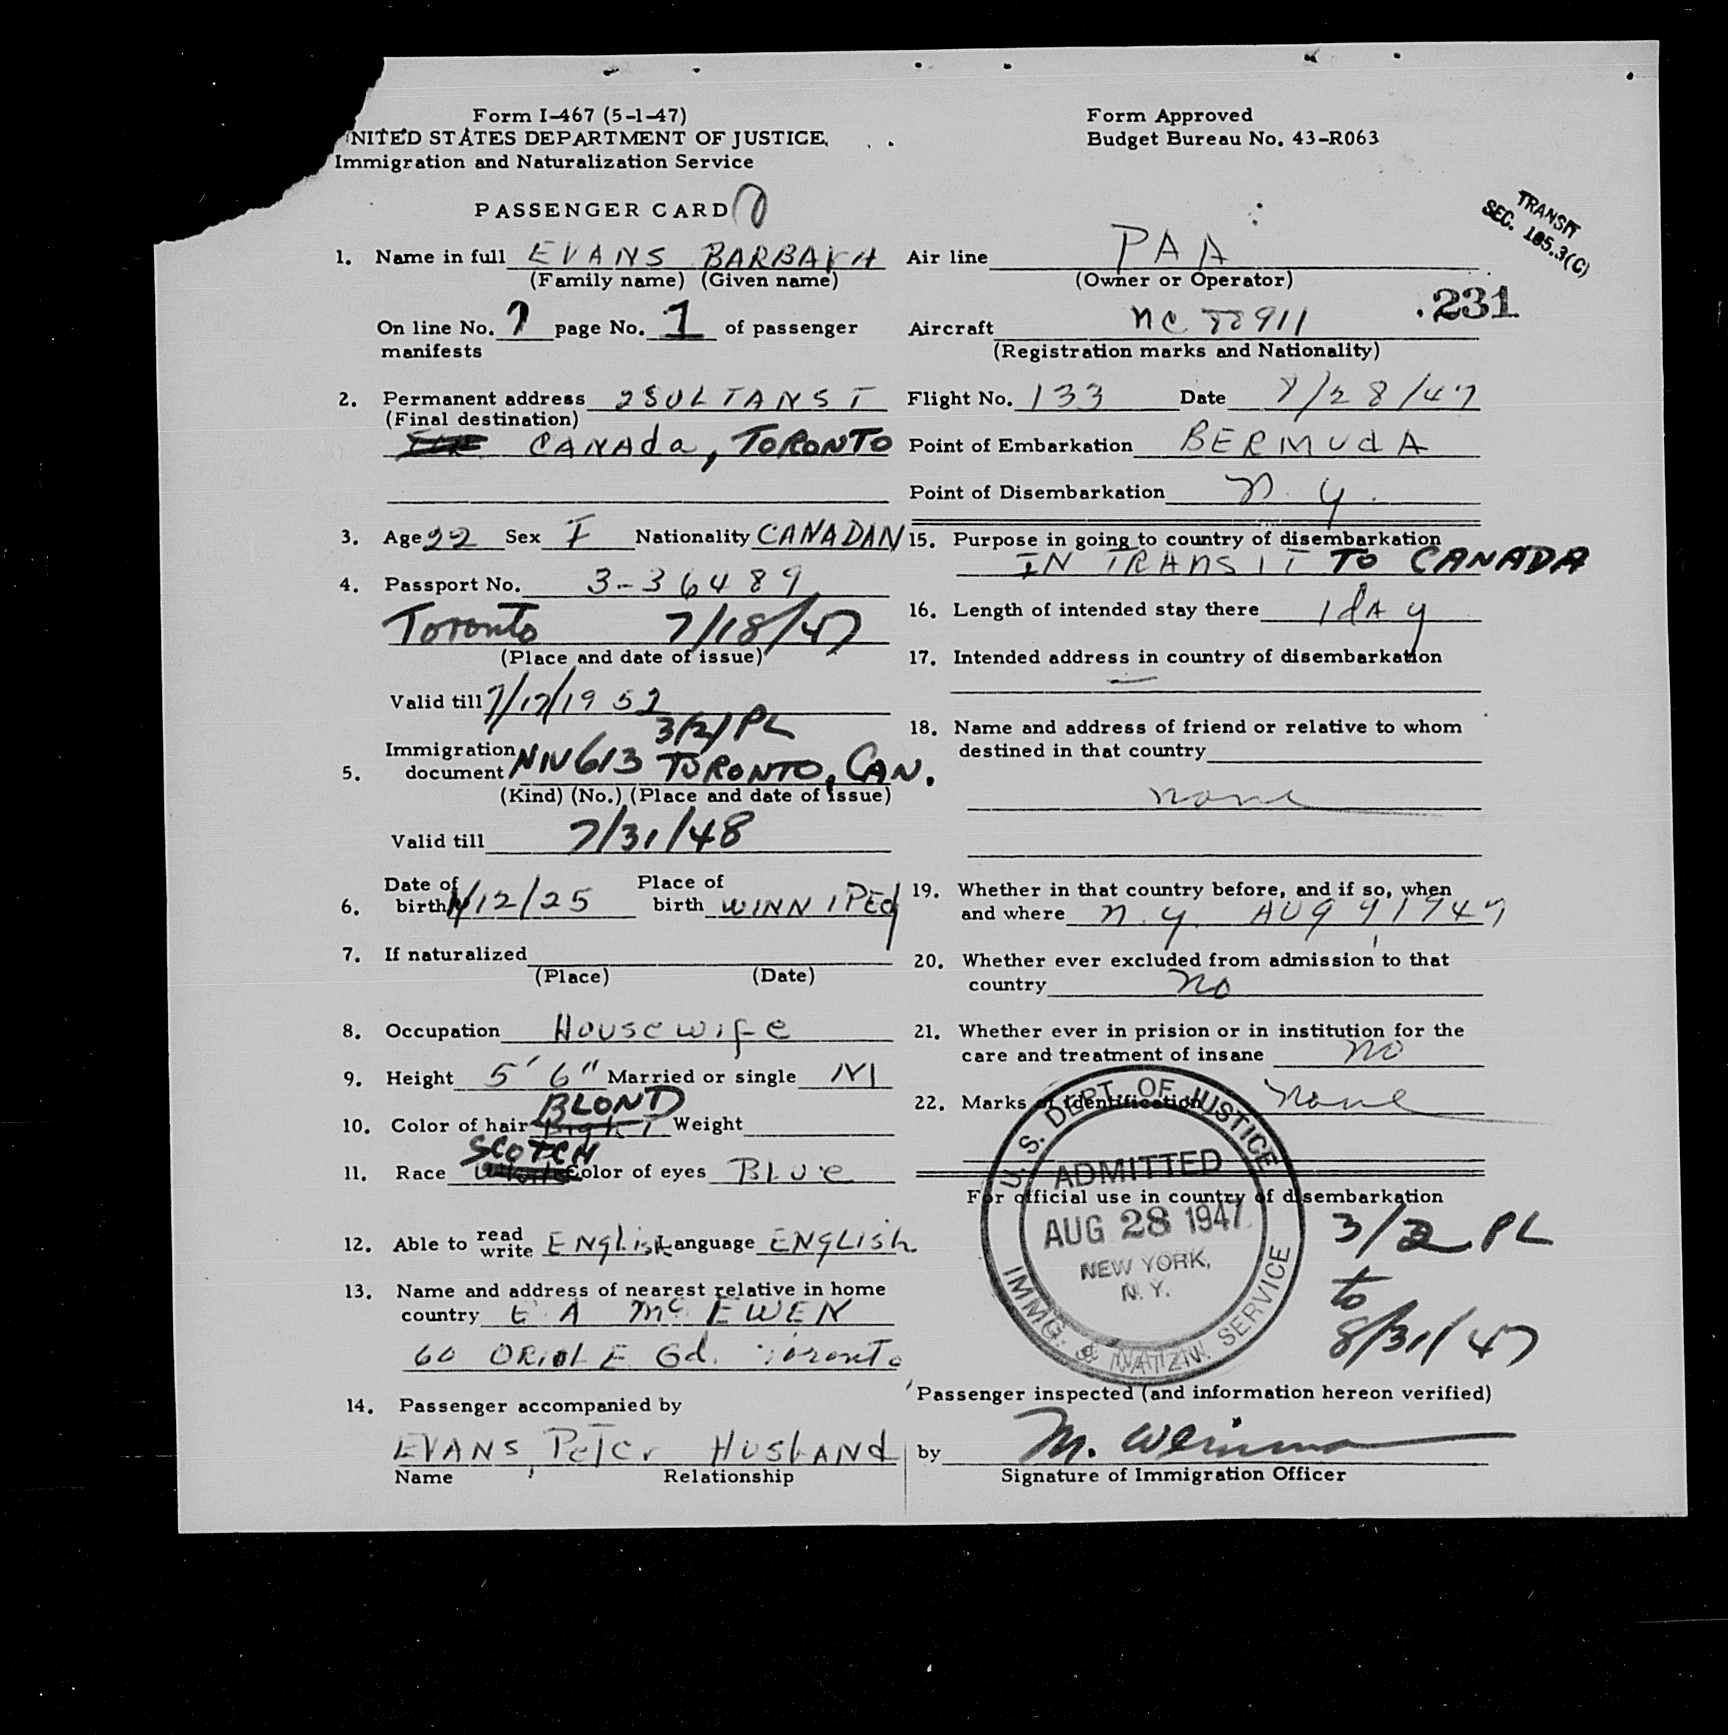 Form I-467 (5-1-47)
NITED STATES DEPARTMENT OF JUSTICE
Immigration and Naturalization Service
Form Approved
Budget Bureau No. 43-R063
PASSENGER CARD
TRANSIT
SEC. 105.3(C)
231
1. Name in full EVANS BARBARA
(Family name) (Given name)
On line No. 7 page No. 1 of passenger
manifests
2. Permanent address 2 SULTAN ST
(Final destination)
CANADA, TORONTO
3. Age 22 Sex F Nationality CANADAN
4. Passport No. 3-36489
Toronto 7/18/47
(Place and date of issue)
Valid till 7/17/1952
3/2/PL
Immigration
5. document NIV613 TORONTO, CAN.
(Kind) (No.) (Place and date of issue)
Valid till 7/31/48
Date of Place of
6. birth /12/25 birth WINNIPEG
7. If naturalized
(Place) (Date)
8. Occupation Housewife
9. Height 5' 6" Married or single M
BLOND
10. Color of hair Light Weight
SCOTCH
11. Race Color of eyes BLUE
12. Able to read write ENglish Language ENGLISH
13. Name and address of nearest relative in home
country E A McEWEN
60 ORIOLE Gd. Toronto
14. Passenger accompanied by
EVANS, Peter HUSBANd
Name Relationship
Air line PAA
(Owner or Operator)
Aircraft NC 88911
(Registration marks and Nationality)
Flight No. 133 Date 8/28/47
Point of Embarkation BERMUdA
Point of Disembarkation N.Y.
15. Purpose in going to country of disembarkation
IN TRANSIT TO CANADA
16. Length of intended stay there 1 dAy
17. Intended address in country of disembarkation
—
18. Name and address of friend or relative to whom
destined in that country
none
19. Whether in that country before, and if so, when
and where N.Y. AUG 9 1947
20. Whether ever excluded from admission to that
country No
21. Whether ever in prision or in institution for the
care and treatment of insane No
22. Marks of Identification None
For official use in country of disembarkation
U.S. DEPT. OF JUSTICE
ADMITTED
AUG 28 1947
NEW YORK,
N.Y.
IMMG. & NATZN. SERVICE
3/2 PL
to
8/31/47
Passenger inspected (and information hereon verified)
by M.
Signature of Immigration Officer